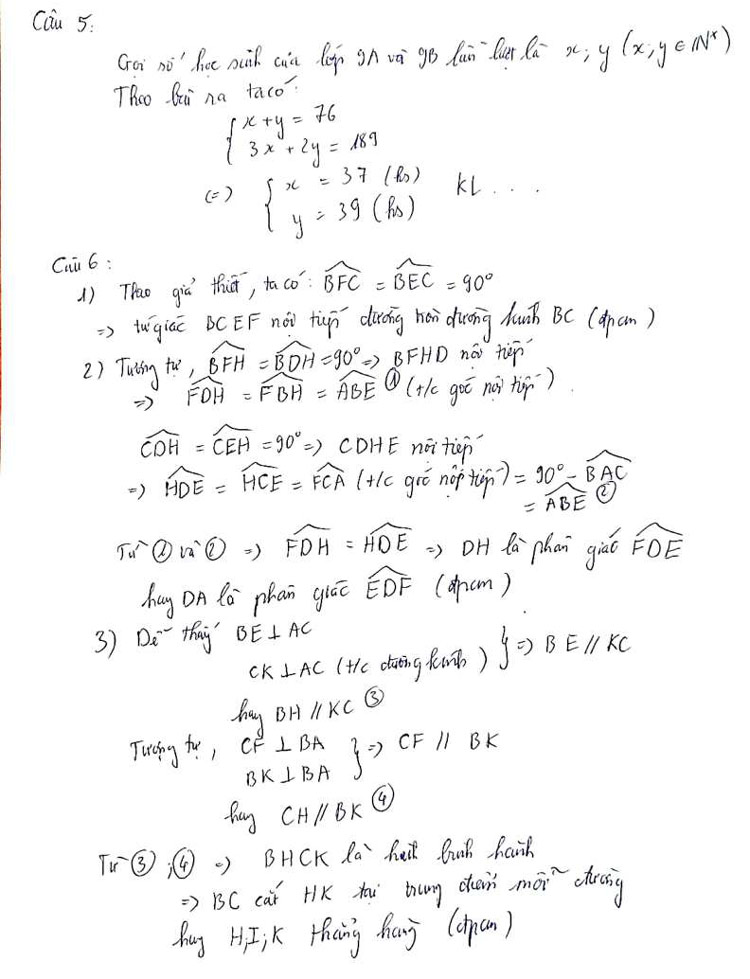 Câu 5:
Gọi số học sinh của lớp 9A và 9B lần lượt là x; y (x; y ∈ IN*)
Theo bài ra ta có:
{ x + y = 76
3x + 2y = 189
(=) { x = 37 (hs)
y = 39 (hs) KL ....
Câu 6:
1) Theo giả thiết, ta có: \widehat{BFC} = \widehat{BEC} = 90°
=> tứ giác BCEF nội tiếp đường tròn đường kính BC (đpcm)
2) Tương tự, \widehat{BFH} = \widehat{BDH} = 90° => BFHD nội tiếp
=> \widehat{FDH} = \widehat{FBH} = \widehat{ABE} ① (t/c góc nội tiếp).
\widehat{CDH} = \widehat{CEH} = 90° => CDHE nội tiếp
=> \widehat{HDE} = \widehat{HCE} = \widehat{FCA} (t/c góc nội tiếp) = 90° - \widehat{BAC}
= \widehat{ABE} ②
Từ ① và ② => \widehat{FDH} = \widehat{HDE} => DH là phân giác \widehat{FDE}
hay DA là phân giác \widehat{EDF} (đpcm)
3) Dễ thấy BE ⊥ AC
CK ⊥ AC (t/c đường kính) } => BE // KC
hay BH // KC ③
Tượng tự, CF ⊥ BA
BK ⊥ BA } => CF // BK
hay CH // BK ④
Từ ③; ④ => BHCK là hình bình hành
=> BC cắt HK tại trung điểm mỗi đường
hay H; I; K thẳng hàng (đpcm)